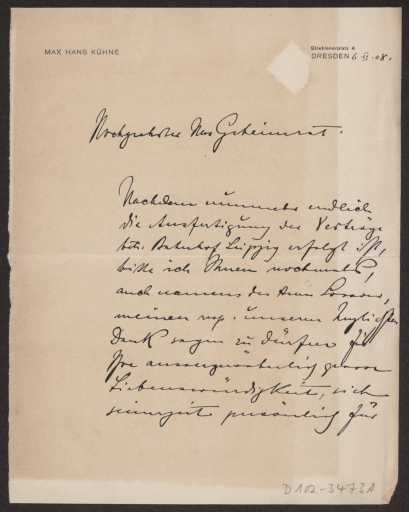 MAX HANS KÜHNE
Strehlenerplatz 4
DRESDEN 6. II. 08.
Hochgeehrter Herr Geheimrat.
Nachdem nunmehr endlich
die Ausfertigung der Verträge
betr. Bahnhof Leipzig erfolgt ist,
bitte ich Ihnen nochmals,
auch namens des Herrn Lossow,
meinen resp. unseren
Dank sagen zu dürfen für
Ihre aussergewöhnlich grosse
Liebenswürdigkeit, sich
seinerzeit persönlich für
D 102-3473A